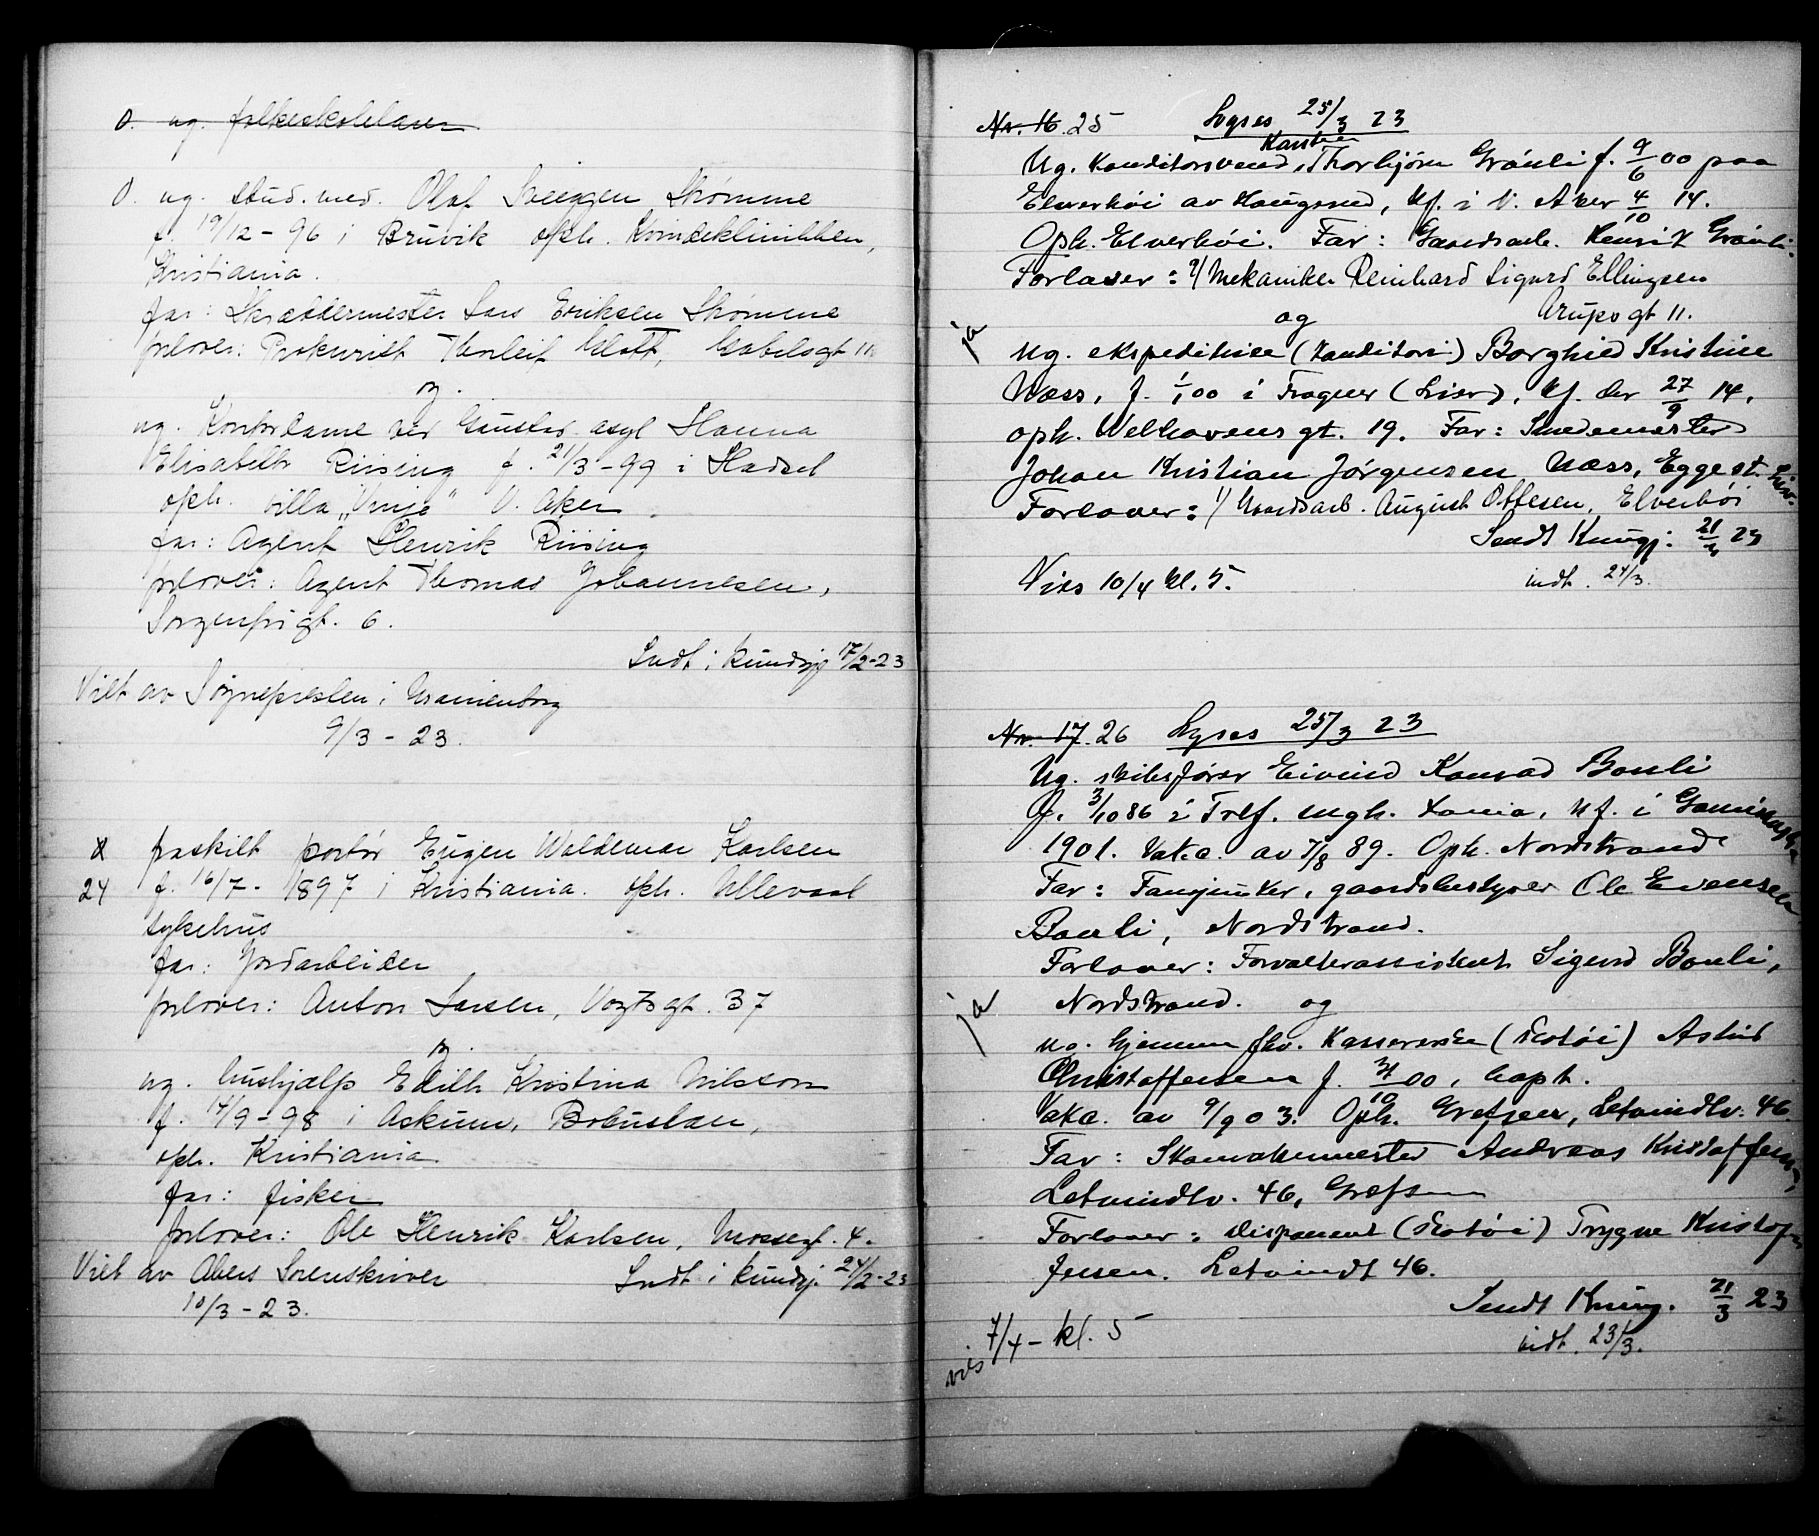 O. ug. folkeskolelærer
O. ug. stud. med. Olaf Skeiggen Strømme
f. 19/12 - 96 i Bruvik oph. Kvindeklinikken,
Kristiania.
far: Skræddermester Lars Eriksen Strømme
forlover: Prokurist Thorleif Klott, Gabelsgt 11
og
ug. Kontordame ved Gaustad asyl Hanna
Elisabeth Riising f. 21/3 - 99 i Hadsel
oph. villa "Vinje" V. Aker
far: Agent Henrik Riising
forlover: Agent Thomas Johannesen,
Sorgenfrigt. 6.
Indt i kundgj 17/2-23
Viet av Sognepresten i Uranienborg
9/3 - 23.
24 fraskilt portør Eugen Waldemar Karlsen
f. 16/7 - 1897 i Kristiania. oph. Ullevaal
sykehus
far: Jordarbeider
forlover: Anton Larsen, Vogtsgt. 37
og
ug. hushjælp Edith Kristina Nilsson
f. 14/9 - 98 i Askum, Bohuslæn,
oph. Kristiania
far: fisker
forlover: Ole Henrik Karlsen, Mossegt. 4.
Indt i kundgj. 24/2-23
Viet av Akers Sorenskriver
10/3 - 23.
Nr. 16. 25 Lyses 25/3 23
Karsten
Ug. Konditorsvend, Thorbjørn Grønli f. 9/6 00 paa
Elverhøi av Haugerud, kf. i V. Aker 4/10 14.
Oph. Elverhøi. Far: Gaardsarb. Henrik Grønli.
Forlover: 1/ Mekaniker Reinhard Sigurd Ellingsen
Arups gt 11.
og
ja
ug. ekspeditrise (Konditori) Borghild Kristine
Næss, f. 1/1 00 i Frogner (Lier), kf. der 27/9 14,
oph. Welhavens gt. 19. Far: Smedemester
Johan Kristian Jørgensen Næss, Egge st. Lier.
Forlover: 1/ Gaardsarb. August Ottesen, Elverhøi
Sendt Kungj. 21/3 23
Vies 10/4 kl. 5. indt. 24/3.
Nr. 17. 26 Lyses 25/3 23
Ug. skibsfører Eivind Konrad Bauli
f. 3/10 86 i Tref. mgh. Xania, kf. i Garnisonsk.
1901. Vakc. av 7/8 89. Oph. Nordstrand
Far: Fanejunker, gaardsbestyrer Ole Evensen
Bauli, Nordstrand.
Forlover: Forvalterassistent Sigurd Bauli,
Nordstrand. og
ja
ug. hjemmehv. Kassererske (Skotøi) Astrid
Christoffersen f. 31/10 00, bapt.
Vakc. av 9/9 03. Oph. Grefsen, Letvindtv. 46
Far: Skomakermester Andreas Kristoffersen,
Letvindtv. 46, Grefsen
Forlover: Disponent (Skotøi) Trygve Kristof-
fersen. Letvindt 46.
Sendt Kung. 21/3 23
vies 7/4 - kl. 5
indt. 23/3.